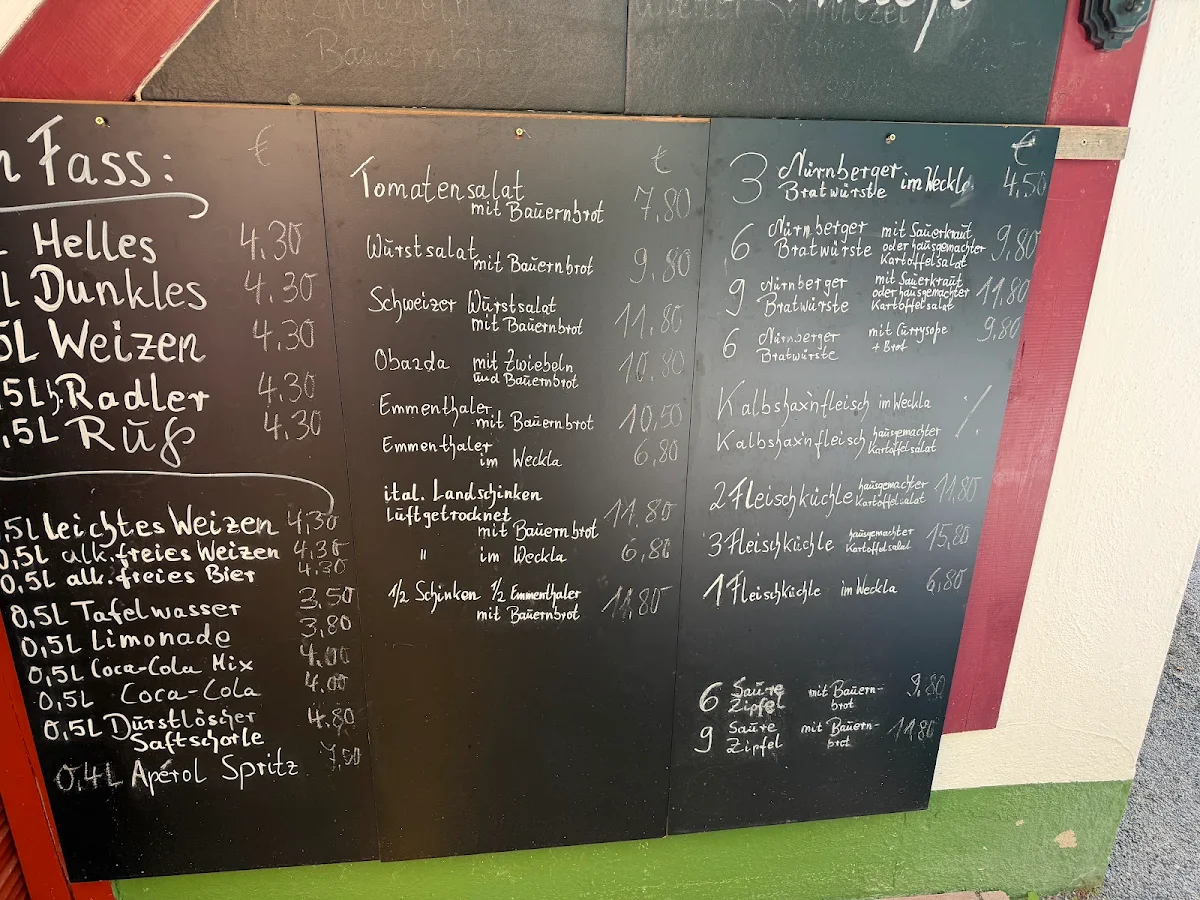 Wiener Schnitzel
Bauernbrot
n Fass: €
L Helles 4.30
L Dunkles 4.30
5L Weizen 4.30
,5L h. Radler 4.30
,5L Ruß 4.30
,5L leichtes Weizen 4,30
0,5L alk.freies Weizen 4.30
0,5L alk.freies Bier 4.30
0,5L Tafelwasser 3,50
0,5L Limonade 3,80
0,5L Coca-Cola Mix 4.00
0,5L Coca-Cola 4.00
0,5L Durstlöscher 4.80
Saftschorle
0,4L Aperol Spritz 7,50
€
Tomatensalat
mit Bauernbrot 7,80
Wurstsalat
mit Bauernbrot 9.80
Schweizer Wurstsalat
mit Bauernbrot 11.80
Obazda mit Zwiebeln
und Bauernbrot 10.80
Emmenthaler
mit Bauernbrot 10,50
Emmenthaler
im Weckla 6,80
ital. Landschinken
luftgetrocknet
mit Bauernbrot 11.80
" im Weckla 6,80
1/2 Schinken 1/2 Emmenthaler
mit Bauernbrot 11,80
€
3 Nürnberger
Bratwürste im Weckla 4,50
6 Nürnberger mit Sauerkraut
Bratwürste oder hausgemachter
Kartoffelsalat 9,80
9 Nürnberger mit Sauerkraut
Bratwürste oder hausgemachter
Kartoffelsalat 11,80
6 Nürnberger mit Currysoße
Bratwürste + Brot 9,80
Kalbshax'nfleisch im Weckla
Kalbshax'nfleisch hausgemachter
Kartoffelsalat
2 Fleischküchle hausgemachter
Kartoffelsalat 11,80
3 Fleischküchle hausgemachter
Kartoffelsalat 15,80
1 Fleischküchle im Weckla 6,80
6 Saure mit Bauern-
Zipfel brot 9,80
9 Saure mit Bauern-
Zipfel brot 11,80